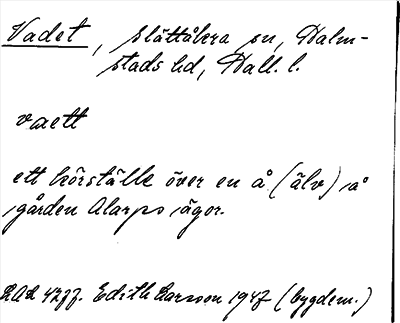 Vadet, Slättåkra sn, Halm-
stads hd, Hall. l.
vaett
ett körställe över en å (älv) på
gården Alarps ägor.
Edith Larsson 1947 (bygdem.)